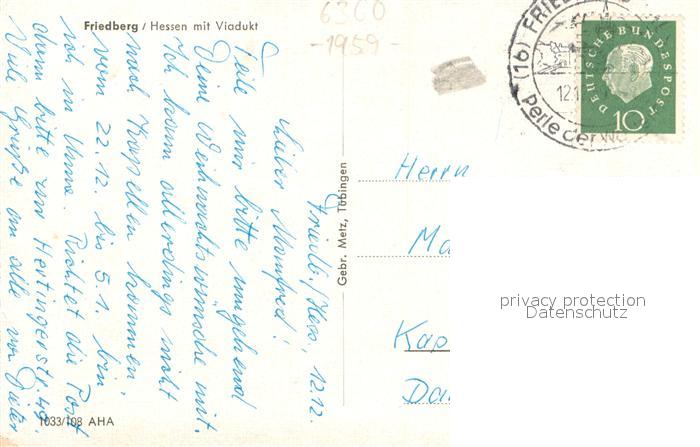 Friedberg / Hessen mit Viadukt
6360
-1959-
Friedb./Hess., 12.12.
Lieber Manfred!
Teile mir bitte umgehend
Deine Weihnachtswünsche mit.
Ich kann allerdings nicht
nach Kapellen kommen,
vom 22.12. bis 5.1. bin
ich in Unna. Richtet die Post
dann bitte zur Hertingerstr. 49.
Viele Grüße an alle von Dieter
Gebr. Metz, Tübingen
1033/108 AHA
(16) FRIED
12.1
Perle der W
DEUTSCHE BUNDESPOST
10
Herrn
Ma
Kap
Da
privacy protection
Datenschutz